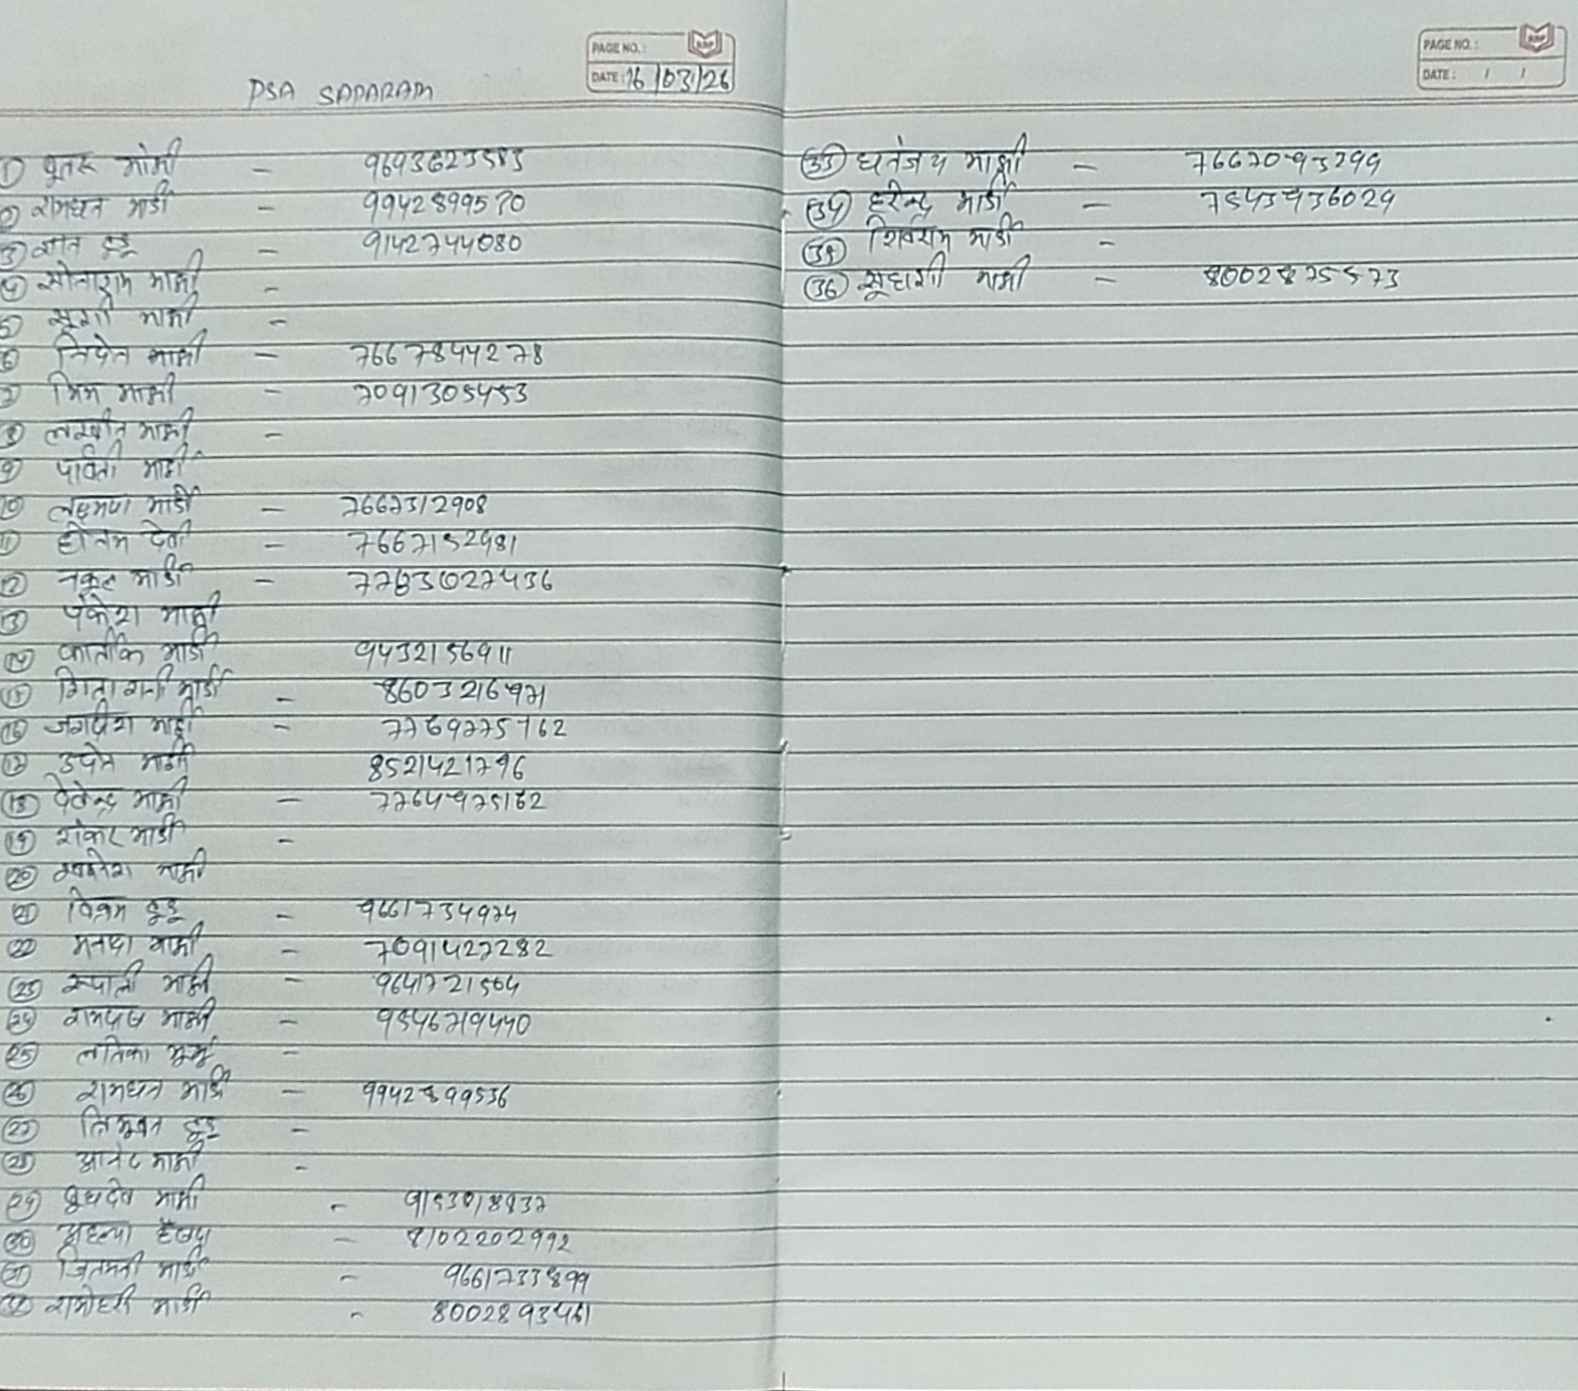 PAGE NO.:
DATE: 16/03/26
PSA SAPARAM
① मार्डी - 9693623583
② रामधन मार्डी - 9942899570
③ टुडू - 9142744080
④ सोनाराम माझी -
⑤ माझी -
⑥ माझी - 7667844278
⑦ भिम माझी - 7091305453
⑧ माझी -
⑨ पार्वती मार्डी
⑩ लक्ष्मण मार्डी - 7667312908
⑪ देवी - 7667152981
⑫ नकुल मार्डी - 7783027436
⑬ माझी
⑭ कार्तीक मार्डी 9432156911
⑮ मार्डी - 8603216971
⑯ जगदीश माझी - 7769775162
⑰ उपेन मार्डी 8521421796
⑱ देवेन्द्र माझी - 7764975162
⑲ शंकर मार्डी -
⑳ माझी
㉑ विक्रम टुडू - 9661734974
㉒ माझी - 7091427282
㉓ रूपाली माझी - 9641721564
㉔ माझी - 9546719440
㉕ लतिका मुर्मू -
㉖ रामधन मार्डी - 9942899536
㉗ त्रिभुवन टुडू -
㉘ माझी -
㉙ बुधदेव माझी - 9153918937
㉚ - 8102202992
㉛ मार्डी - 9661733899
㉜ मार्डी - 8002893461
PAGE NO.:
DATE: / /
㉝ धनंजय माझी - 7667093299
㉞ हरेन्द्र मार्डी - 7543936029
㉟ शिवराम मार्डी -
㊱ माझी - 8002875573